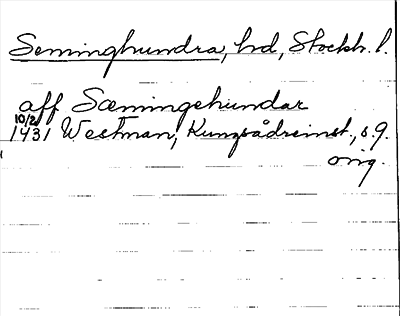 Seminghundra, hd, Stockh. l.
aff Sæmingehundar
10/2
1431 Westman, Kungsådreinst., s. 9.
orig.